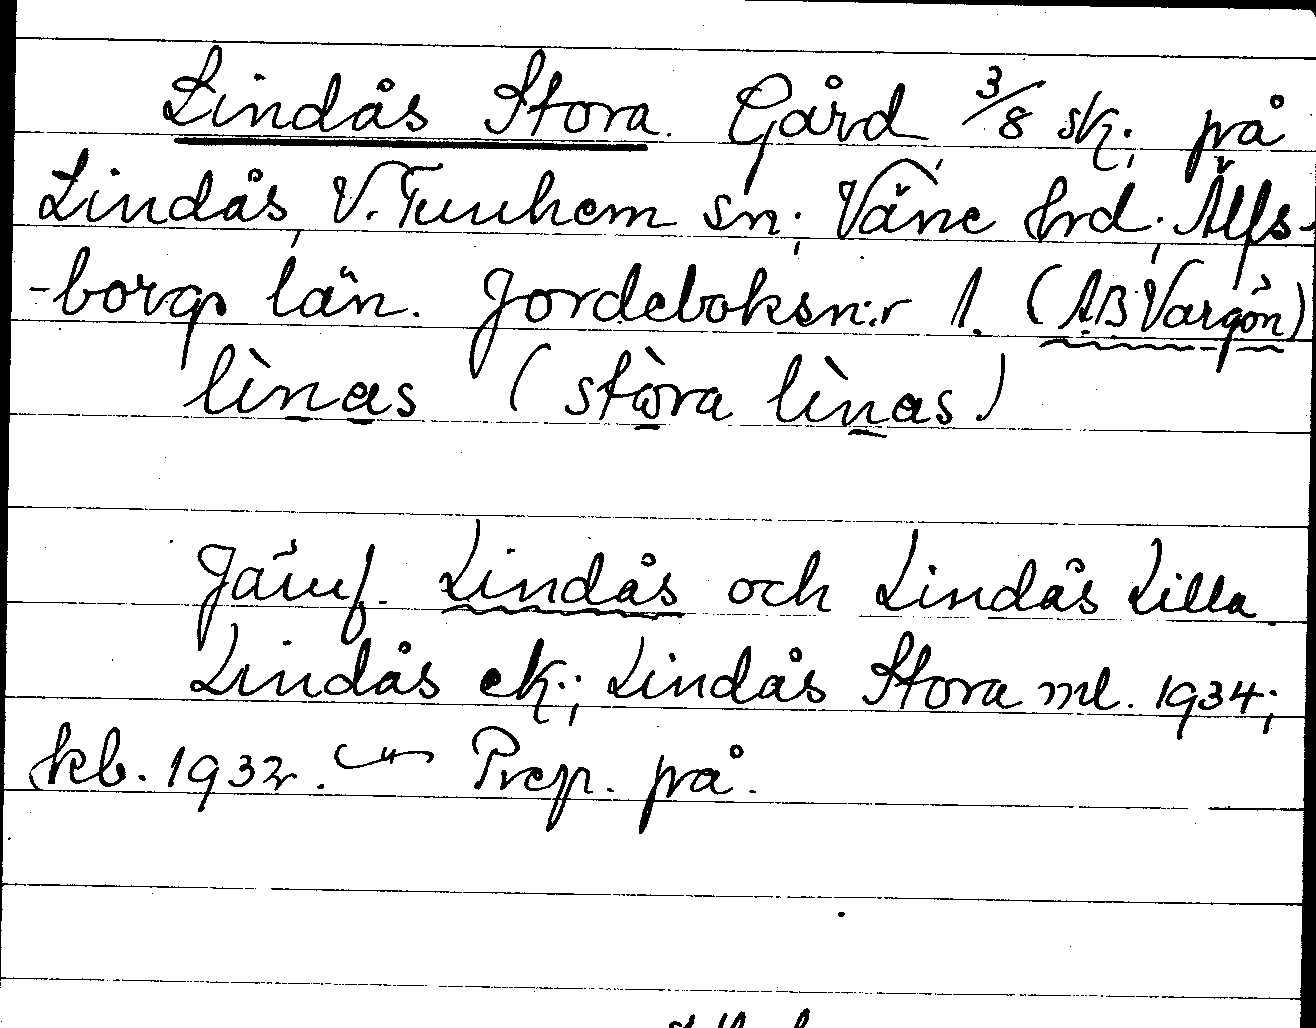 Lindås Stora. Gård 3/8 sk; på
Lindås, V. Tunhem sn; Väne hrd; Älfs-
-borgs län. Jordeboksn:r 1. (AB Vargön)
lìnas (stòra lìnas)
Jämf. Lindås och Lindås Lilla.
Lindås ek.; Lindås Stora ml. 1934;
kb. 1932. — " — Prep. på.